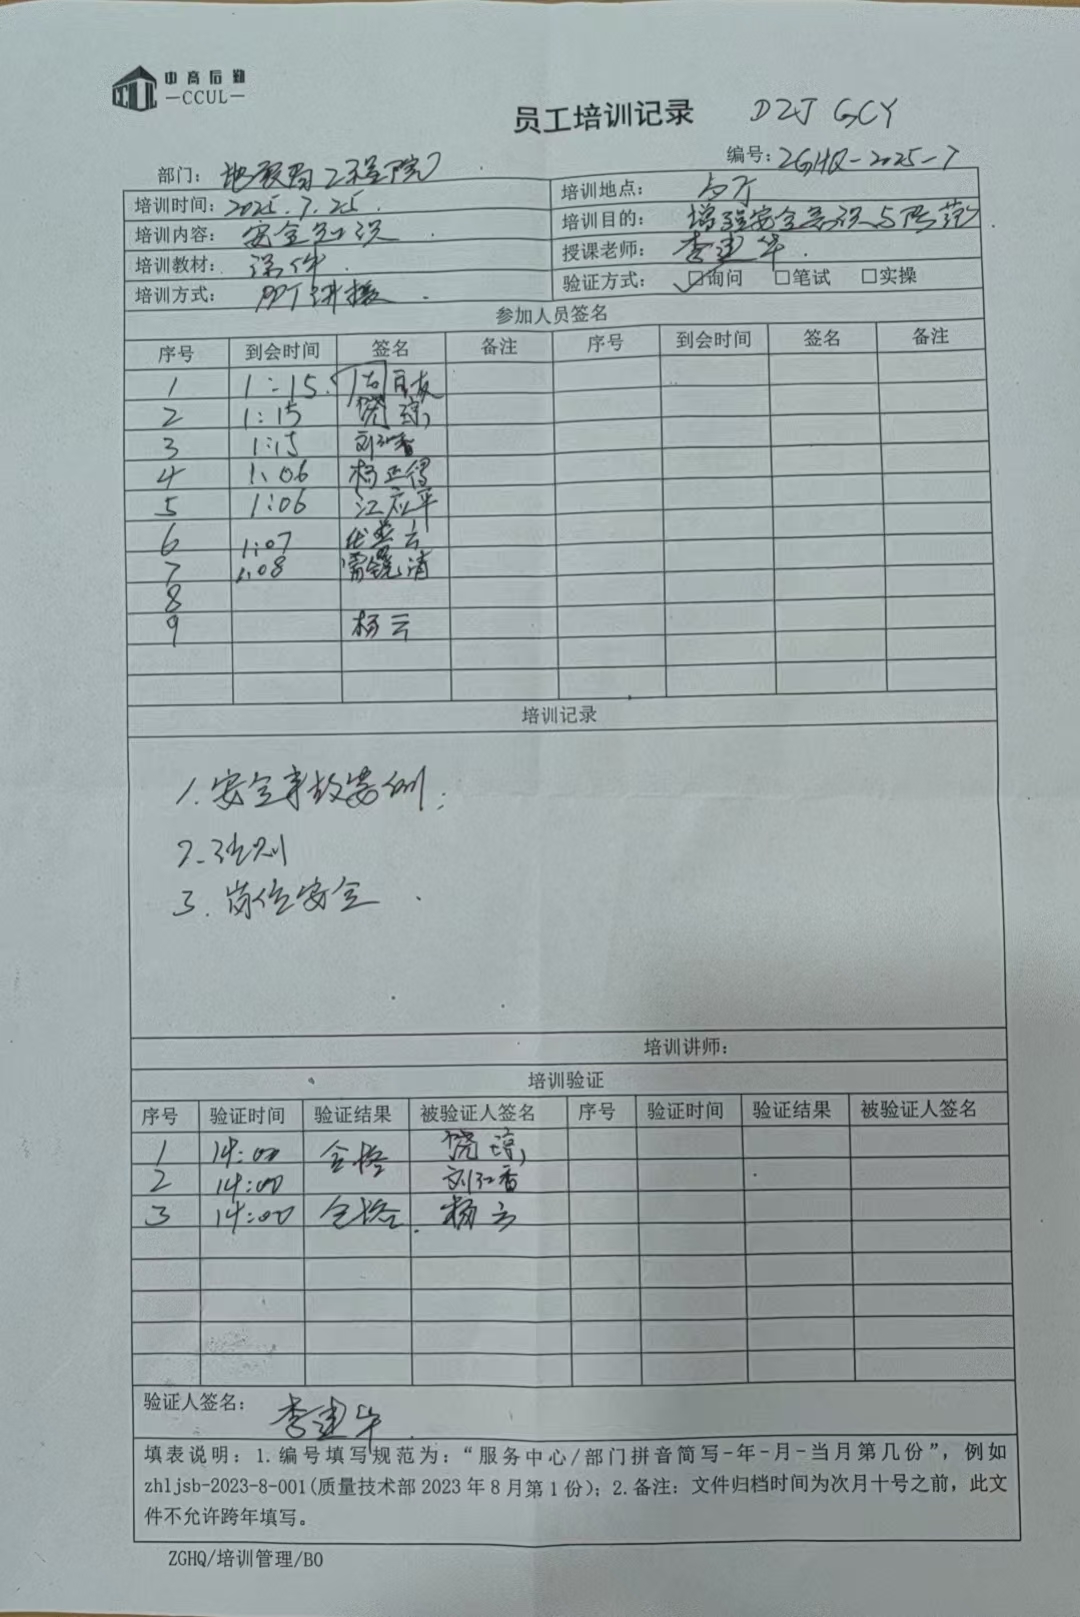 中高后勤
CCUL
员工培训记录 DZJ GCY
部门: 地震局工程院 编号: ZGHQ-2025-7
培训时间: 2025.7.25. 培训地点:
培训内容: 安全知识 培训目的: 增强安全意识与防范
培训教材: 课件 授课老师: 李建华
培训方式: PPT讲授 验证方式: ✓□询问 □笔试 □实操
参加人员签名
序号 到会时间 签名 备注 序号 到会时间 签名 备注
1 1:15
2 1:15
3 1:15 刘红香
4 1:06 杨正得
5 1:06 江应平
6 1:07
7 1:08
8
9 杨云
培训记录
1.安全事故案例;
2.法则
3.岗位安全.
培训讲师:
培训验证
序号 验证时间 验证结果 被验证人签名 序号 验证时间 验证结果 被验证人签名
1 14:00 合格
2 14:00 刘红香
3 14:00 合格 杨云
验证人签名: 李建华
填表说明: 1.编号填写规范为:“服务中心/部门拼音简写-年-月-当月第几份”, 例如
zhljsb-2023-8-001(质量技术部2023年8月第1份); 2.备注: 文件归档时间为次月十号之前, 此文
件不允许跨年填写。
ZGHQ/培训管理/B0